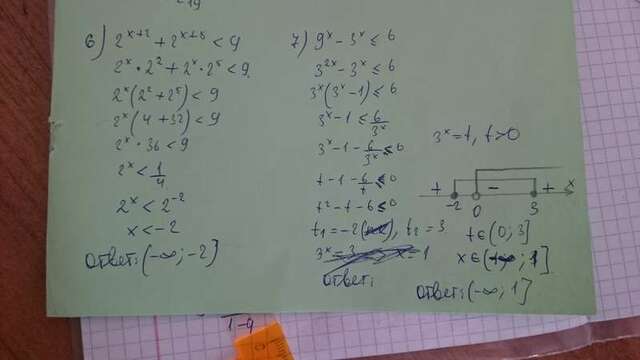 19
6) 2^(x+2) + 2^(x+5) < 9
2^x · 2^2 + 2^x · 2^5 < 9
2^x(2^2 + 2^5) < 9
2^x(4 + 32) < 9
2^x · 36 < 9
2^x < 1/4
2^x < 2^-2
x < -2
Ответ: (-∞; -2)
7) 9^x - 3^x ≤ 6
3^2x - 3^x ≤ 6
3^x(3^x - 1) ≤ 6
3^x - 1 ≤ 6/3^x
3^x - 1 - 6/3^x ≤ 0
t - 1 - 6/t ≤ 0
t^2 - t - 6 ≤ 0
t₁ = -2, t₂ = 3
3^x = 3 x = 1
Ответ:
3^x = t, t > 0
+ - + x
-2 0 3
t ∈ (0; 3]
x ∈ (-∞; 1]
Ответ: (-∞; 1]
1-9